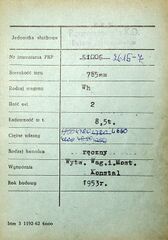 Jednostka służbowa
Nr inwentarza PKP 51006 2615-7
Szerokość toru 785mm
Rodzaj wagonu Wh
Ilość osi 2
Ładowność w t. 8,5t.
Ciężar własny
Rodzaj hamulca ręczny
Wytwórnia Wytw. Wag.i Most.
Konstal
Rok budowy 1953r.